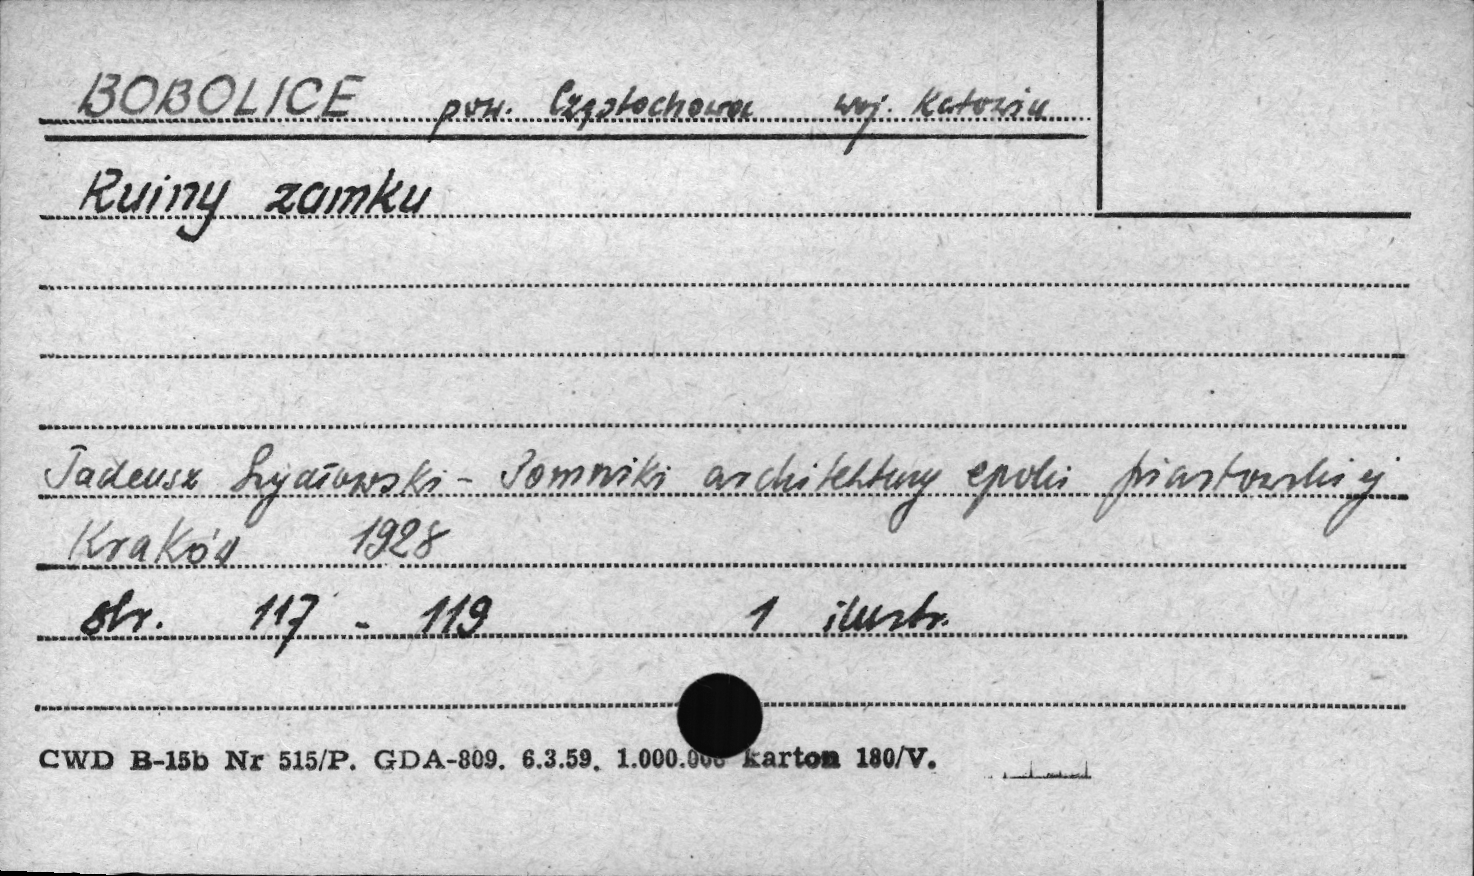 BOBOLICE pow. Częstochowa woj. Katowice
Ruiny zamku
Tadeusz Szydłowski - Pomniki architektury epoki piastowskiej
Kraków 1928
str. 117 - 119 1 ilustr.
CWD B-15b Nr 515/P. GDA-809. 6.3.59. 1.000.000 karton 180/V.